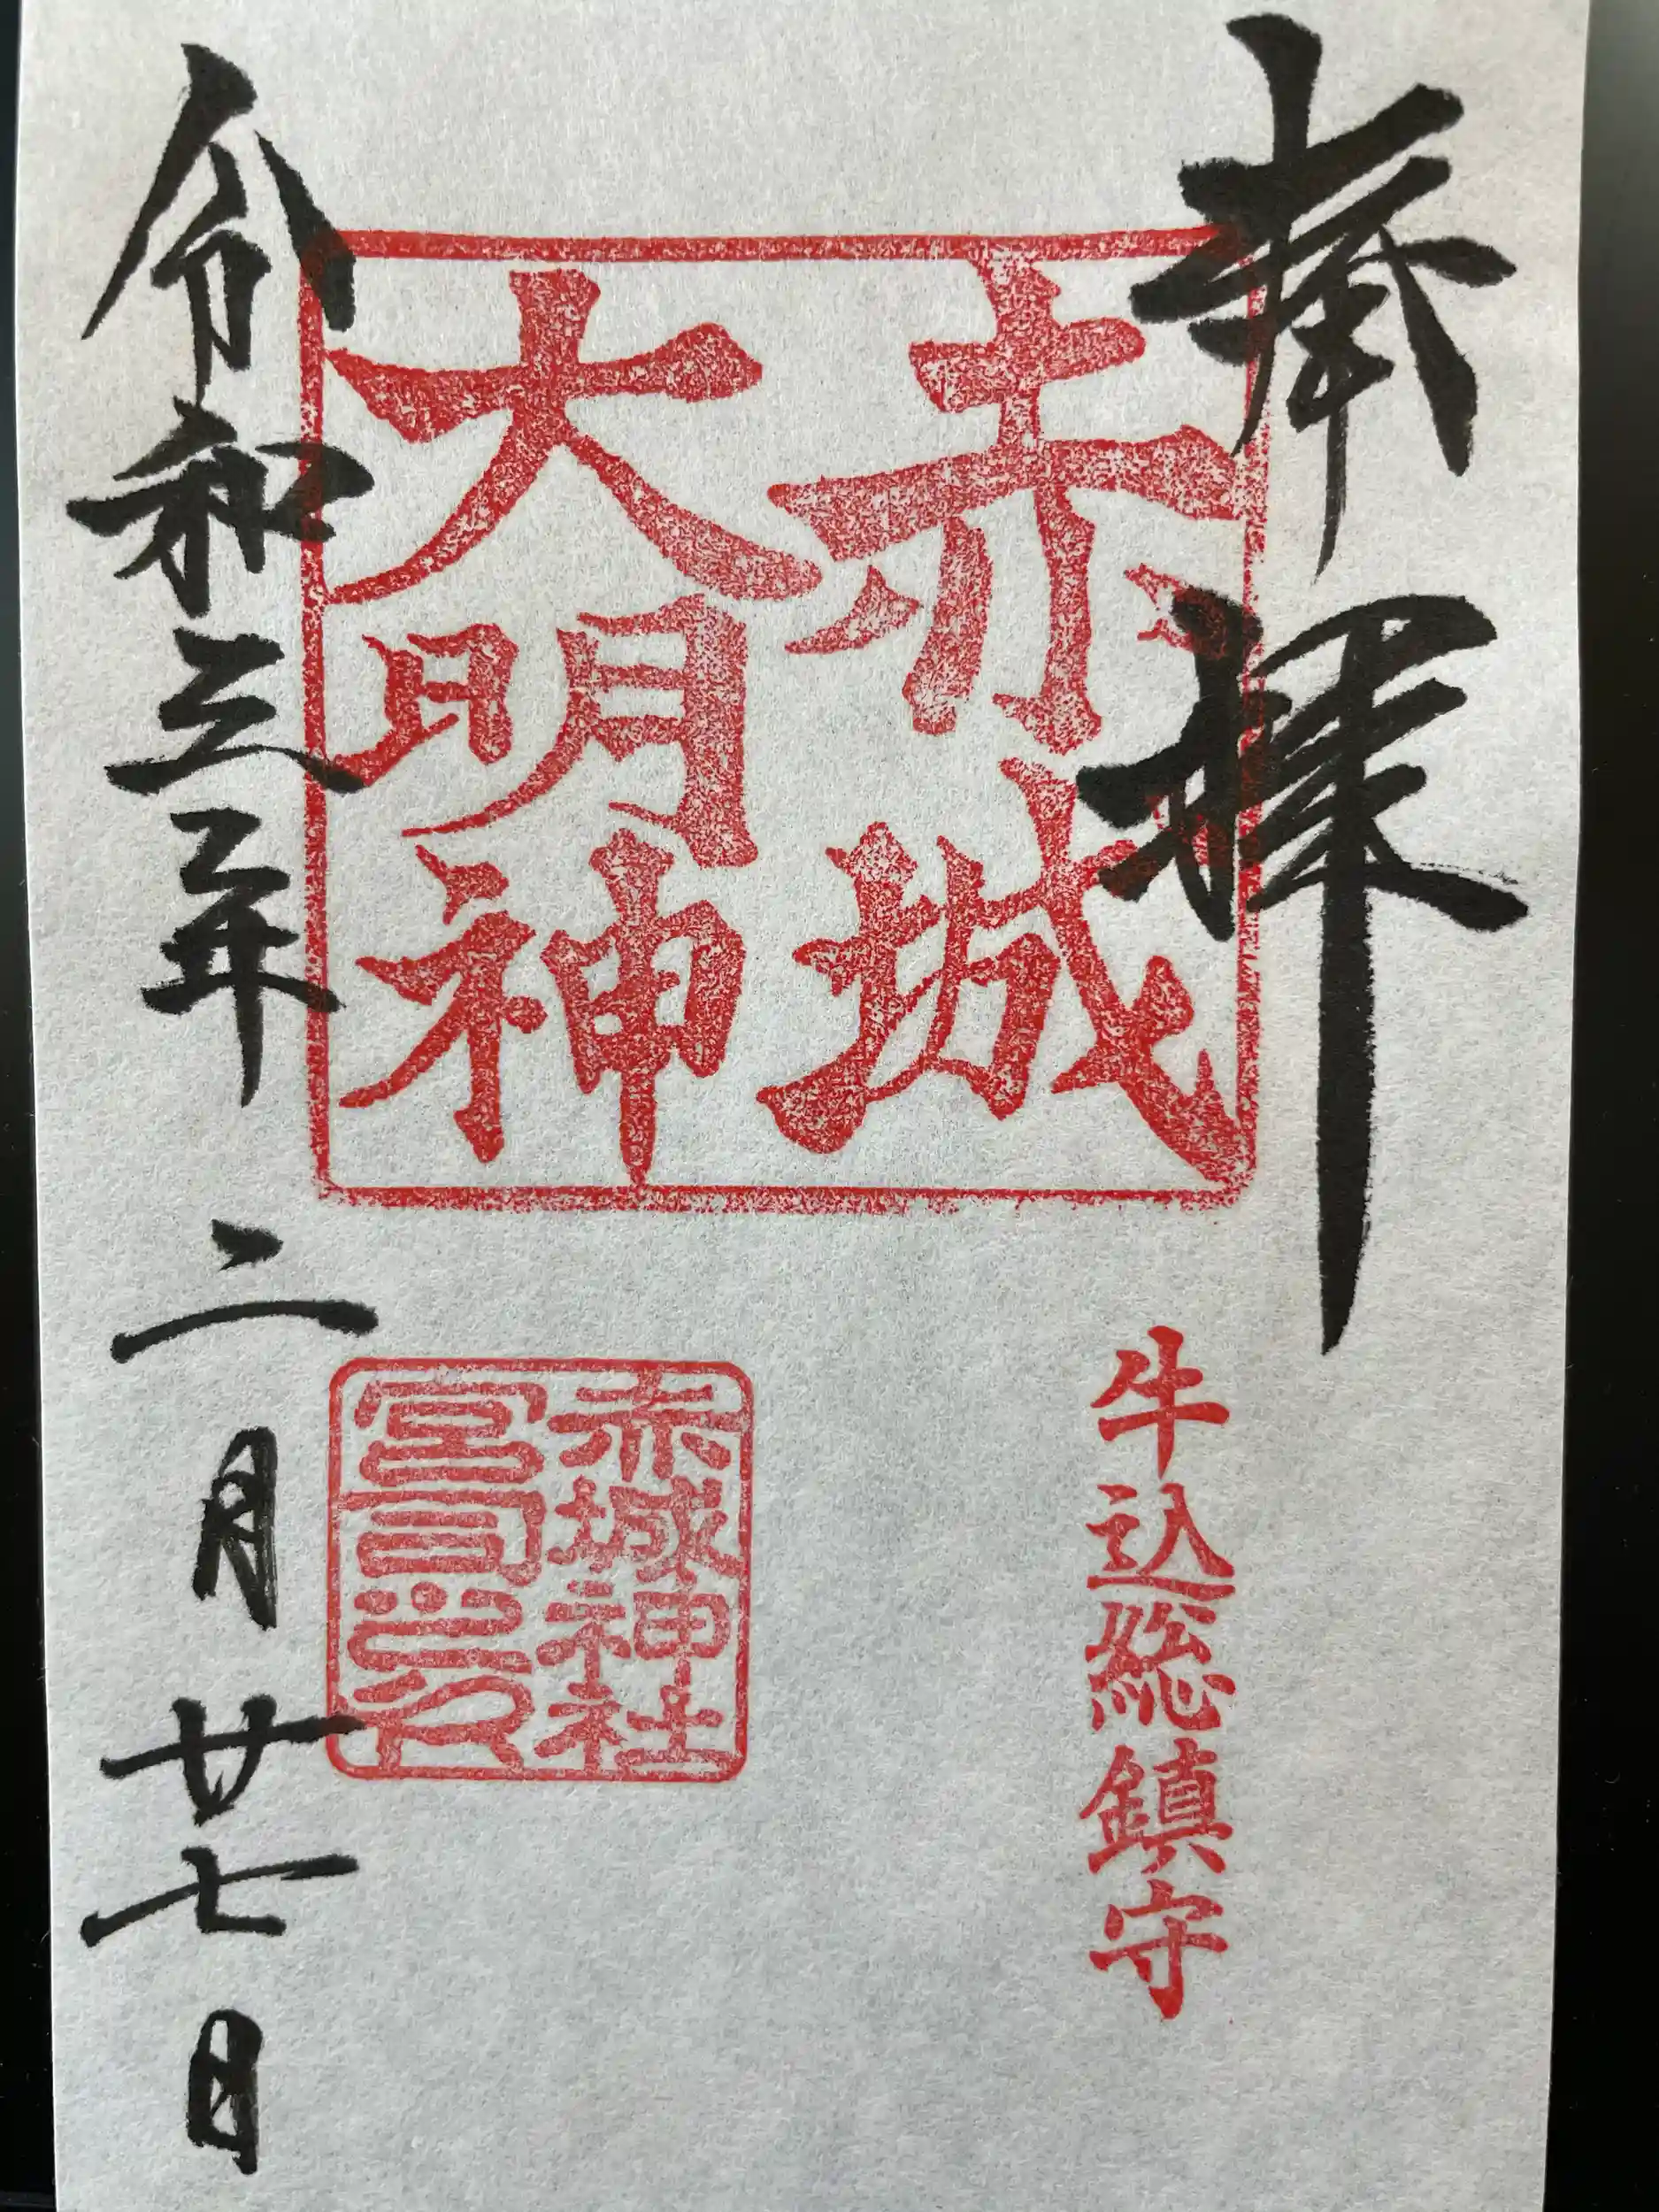 奉拝
牛込総鎮守
赤城
大明神
赤城神社
宮司之印
令和三年二月廿七日